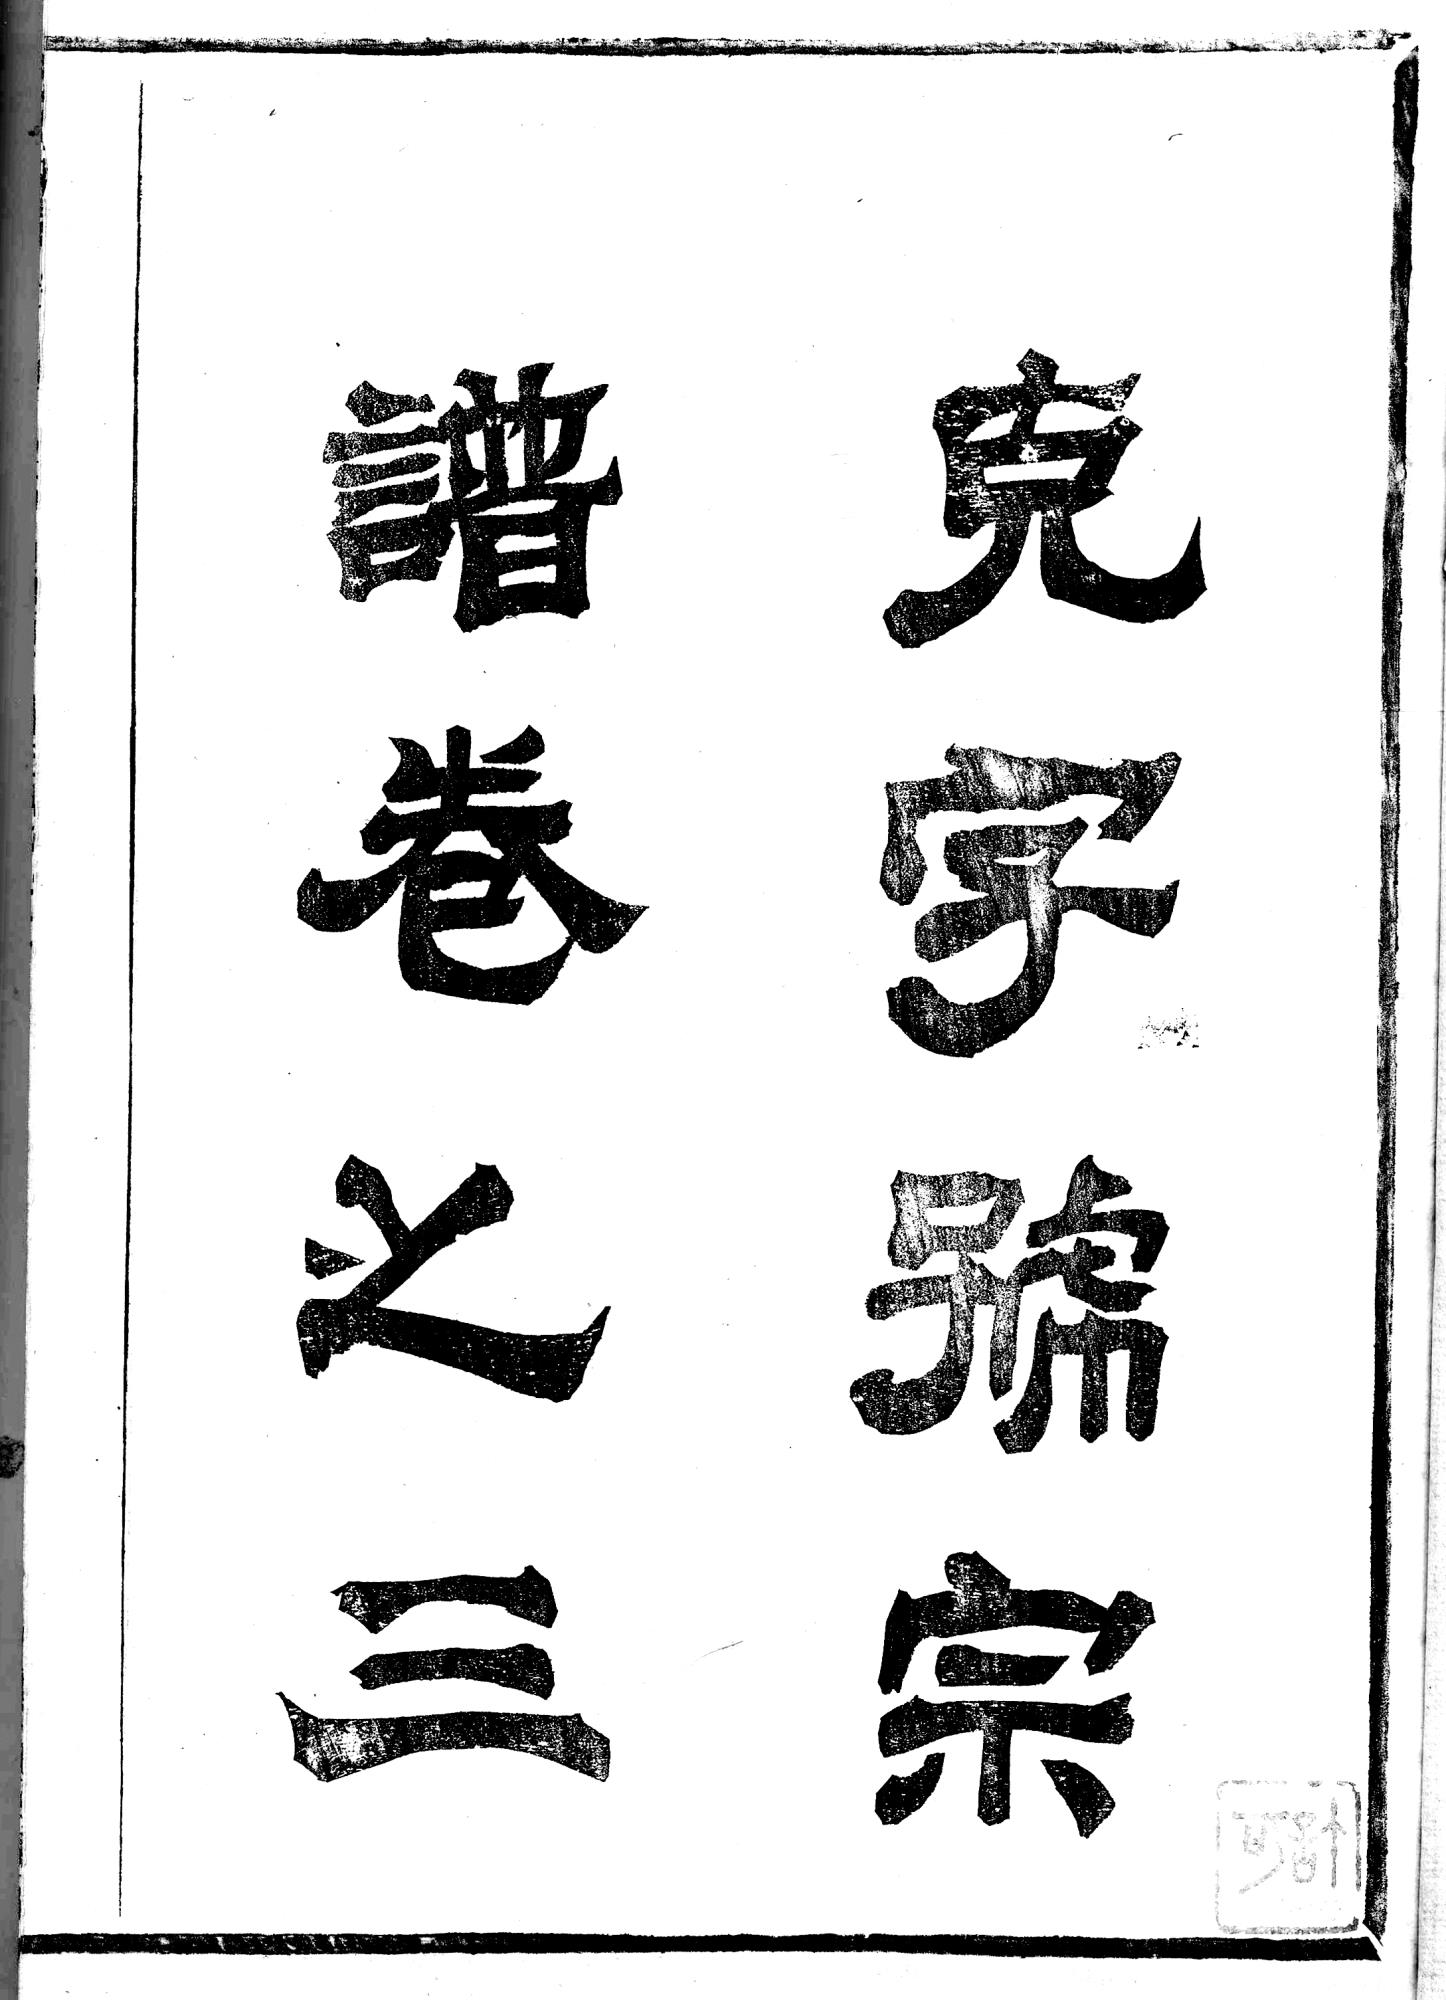 克字號宗
譜卷之三